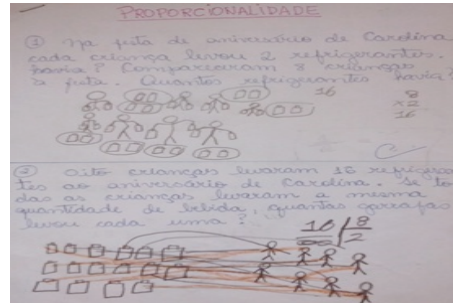 PROPORCIONALIDADE
① Na festa de aniversário de Carolina
cada criança levou 2 refrigerantes.
havia? Compareceram 8 crianças
à festa. Quantos refrigerantes havia?
16
8
x2
16
C
② Oito crianças levaram 16 refrigeran
tes ao aniversário de Carolina. Se to
das as crianças levaram a mesma
quantidade de bebida, quantas garrafas
levou cada uma?
16 8
2